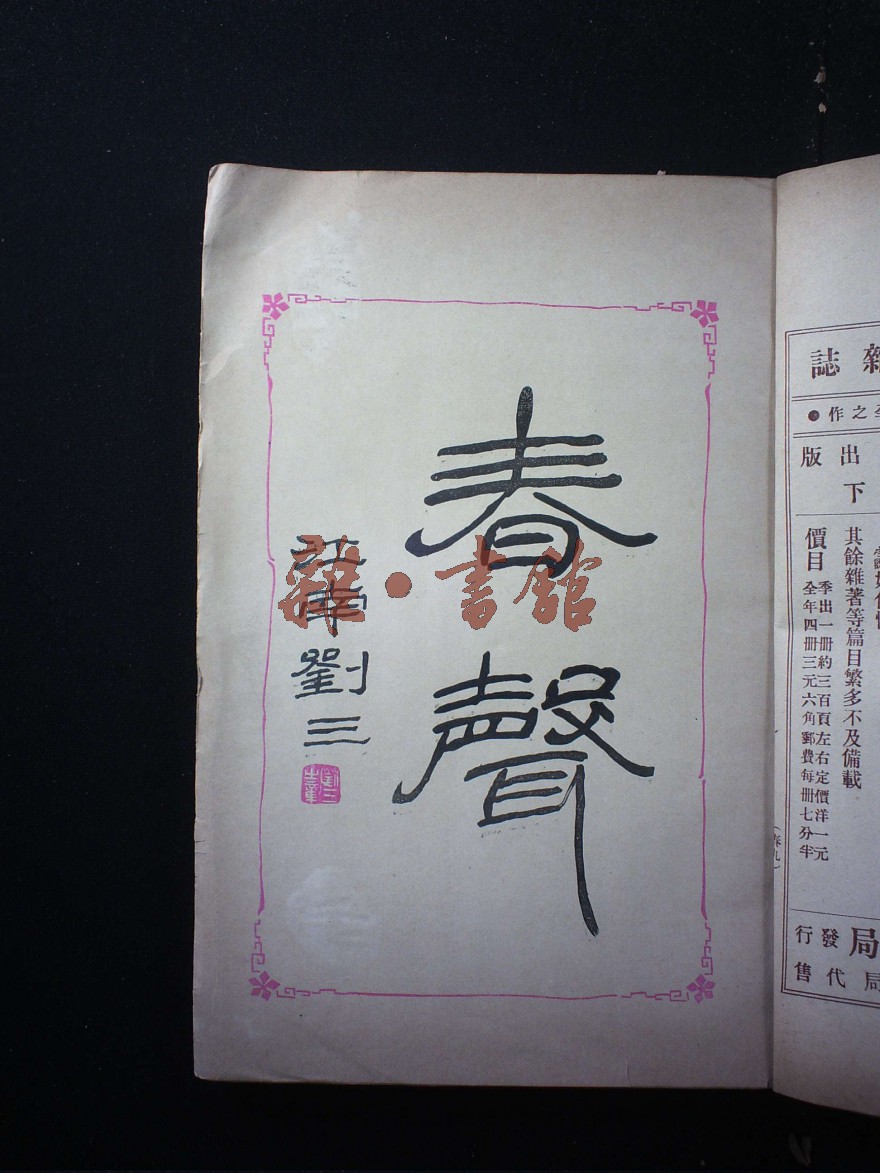 春聲
江南劉三
雜誌
之作●
出版
下
其餘雜著等篇目繁多不及備載
價目
季出一冊約三百頁左右定價洋一元
全年四冊三元六角郵費每冊七分半
局發行
局代售
書館